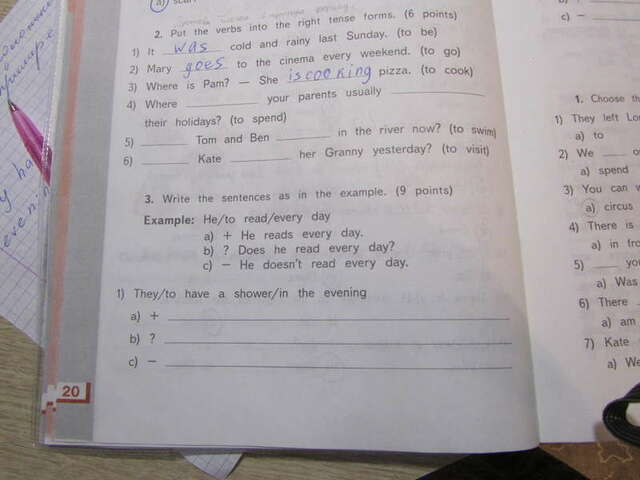 2. Put the verbs into the right tense forms. (6 points)
1) It was cold and rainy last Sunday. (to be)
2) Mary goes to the cinema every weekend. (to go)
3) Where is Pam? — She is cooking pizza. (to cook)
4) Where ____ your parents usually ____
their holidays? (to spend)
5) ____ Tom and Ben ____ in the river now? (to swim)
6) ____ Kate ____ her Granny yesterday? (to visit)
3. Write the sentences as in the example. (9 points)
Example: He/to read/every day
a) + He reads every day.
b) ? Does he read every day?
c) — He doesn't read every day.
1) They/to have a shower/in the evening
a) +
b) ?
c) —
20
c) —
1. Choose th
1) They left Lon
a) to
2) We ____ o
a) spend
3) You can w
a) circus
4) There is
a) in fro
5) ____ you
a) Was
6) There
a) am
7) Kate
a) We